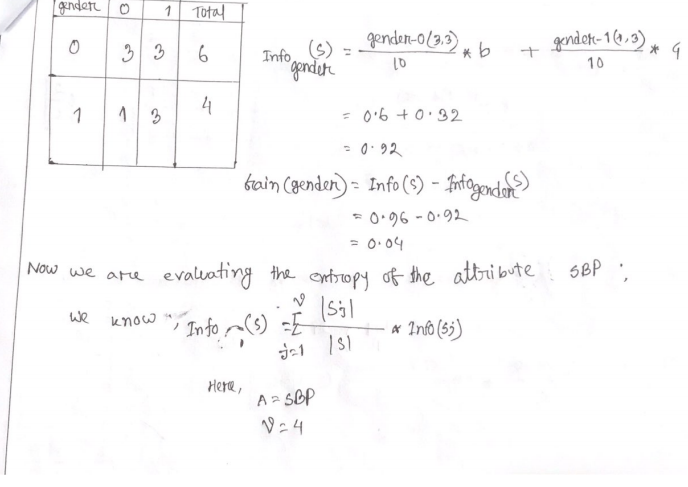 gender 0 1 Total
0 3 3 6
1 1 3 4
Info gender (S) = gender-0(3,3) / 10 * 6 + gender-1(1,3) / 10 * 4
= 0.6 + 0.32
= 0.92
Gain (gender) = Info (S) - Info gender (S)
= 0.96 - 0.92
= 0.04
Now we are evaluating the entropy of the attribute SBP ;
we know, Info (S) = Σ j=1 v |Sj| / |S| * Info (Sj)
Here,
A = SBP
V = 4